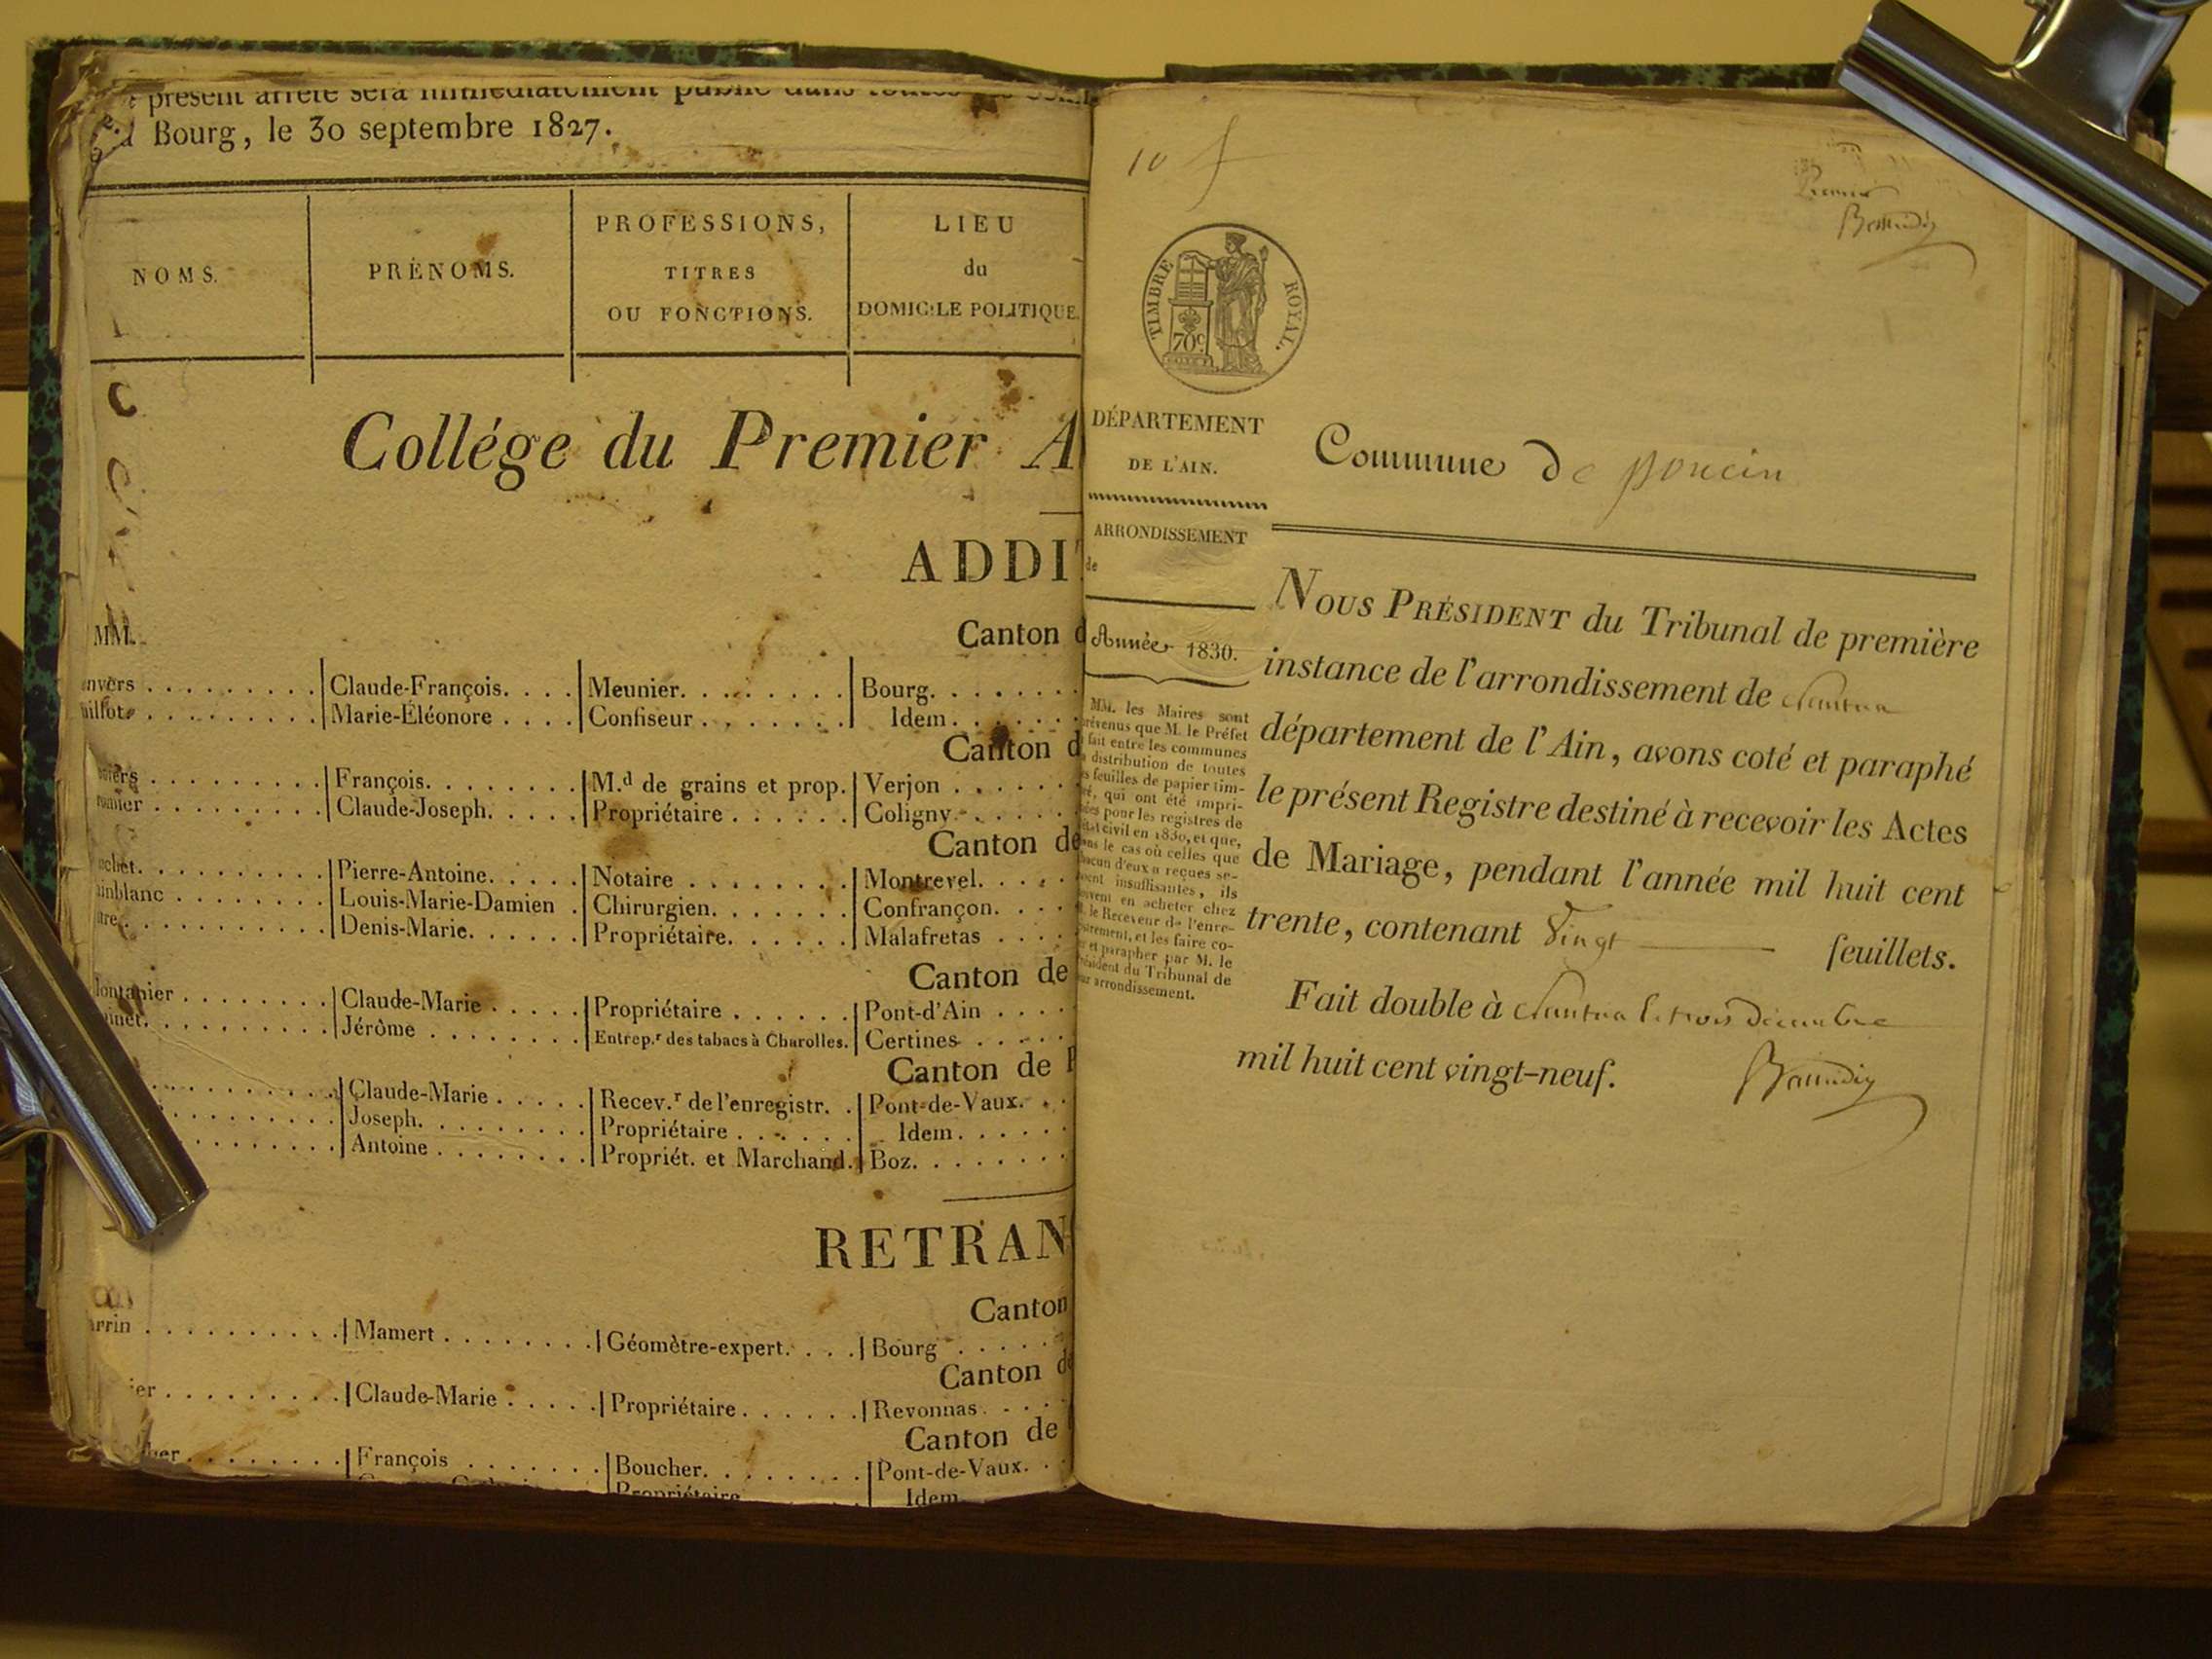 présent arrêté sera immédiatement publié dans
Bourg, le 30 septembre 1827.
NOMS.
PRÉNOMS.
PROFESSIONS,
TITRES
OU FONCTIONS.
LIEU
du
DOMICILE POLITIQUE.
Collége du Premier A
ADDIT
MM.
Canton d
nvers Claude-François. Meunier. Bourg.
Marie-Éléonore Confiseur Idem.
Canton d
François. M.d de grains et prop. Verjon
Claude-Joseph. Propriétaire Coligny
Canton de
chet. Pierre-Antoine. Notaire Montrevel.
inblanc Louis-Marie-Damien Chirurgien. Confrançon.
Denis-Marie. Propriétaire. Malafretas
Canton de
lontanier Claude-Marie Propriétaire Pont-d'Ain
Jérôme Entrep.r des tabacs à Charolles. Certines
Canton de P
Claude-Marie Recev.r de l'enregistr. Pont-de-Vaux.
Joseph. Propriétaire Idem.
Antoine Propriét. et Marchand. Boz.
RETRAN
Canton
rrin Mamert Géomètre-expert. Bourg
Canton de
ier Claude-Marie Propriétaire. Revonnas
Canton de
her François Boucher. Pont-de-Vaux.
Propriétaire Idem
10
Premier
TIMBRE ROYAL.
70c
DÉPARTEMENT
DE L'AIN.
ARRONDISSEMENT
de
Année 1830.
MM. les Maires sont
révenus que M. le Préfet
fait entre les communes
distribution de toutes
s feuilles de papier tim-
ré, qui ont été impri-
ées pour les registres de
état civil en 1830, et que,
ans le cas où celles que
hacun d'eux a reçues se-
oient insuffisantes, ils
euvent en acheter chez
. le Receveur de l'enre-
istrement, et les faire co-
er et parapher par M. le
résident du Tribunal de
ur arrondissement.
Commune de poncin
NOUS PRÉSIDENT du Tribunal de première
instance de l'arrondissement de Nantua
département de l'Ain, avons coté et paraphé
le présent Registre destiné à recevoir les Actes
de Mariage, pendant l'année mil huit cent
trente, contenant Vingt feuillets.
Fait double à Nantua le trois décembre
mil huit cent vingt-neuf.